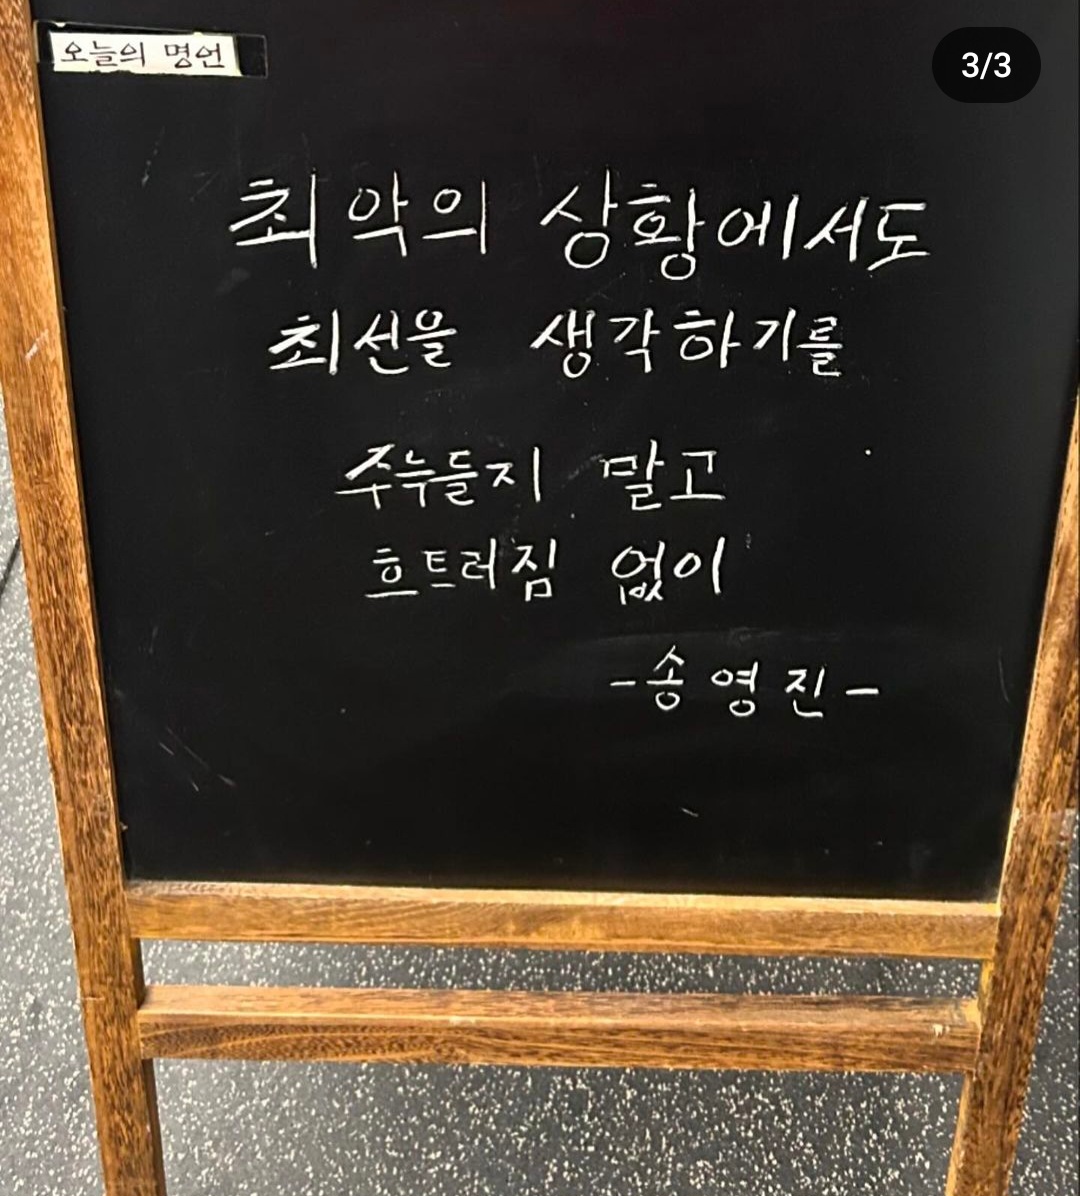 오늘의 명언
3/3
최악의 상황에서도
최선을 생각하기를
주눅들지 말고
흐트러짐 없이
-송영진-